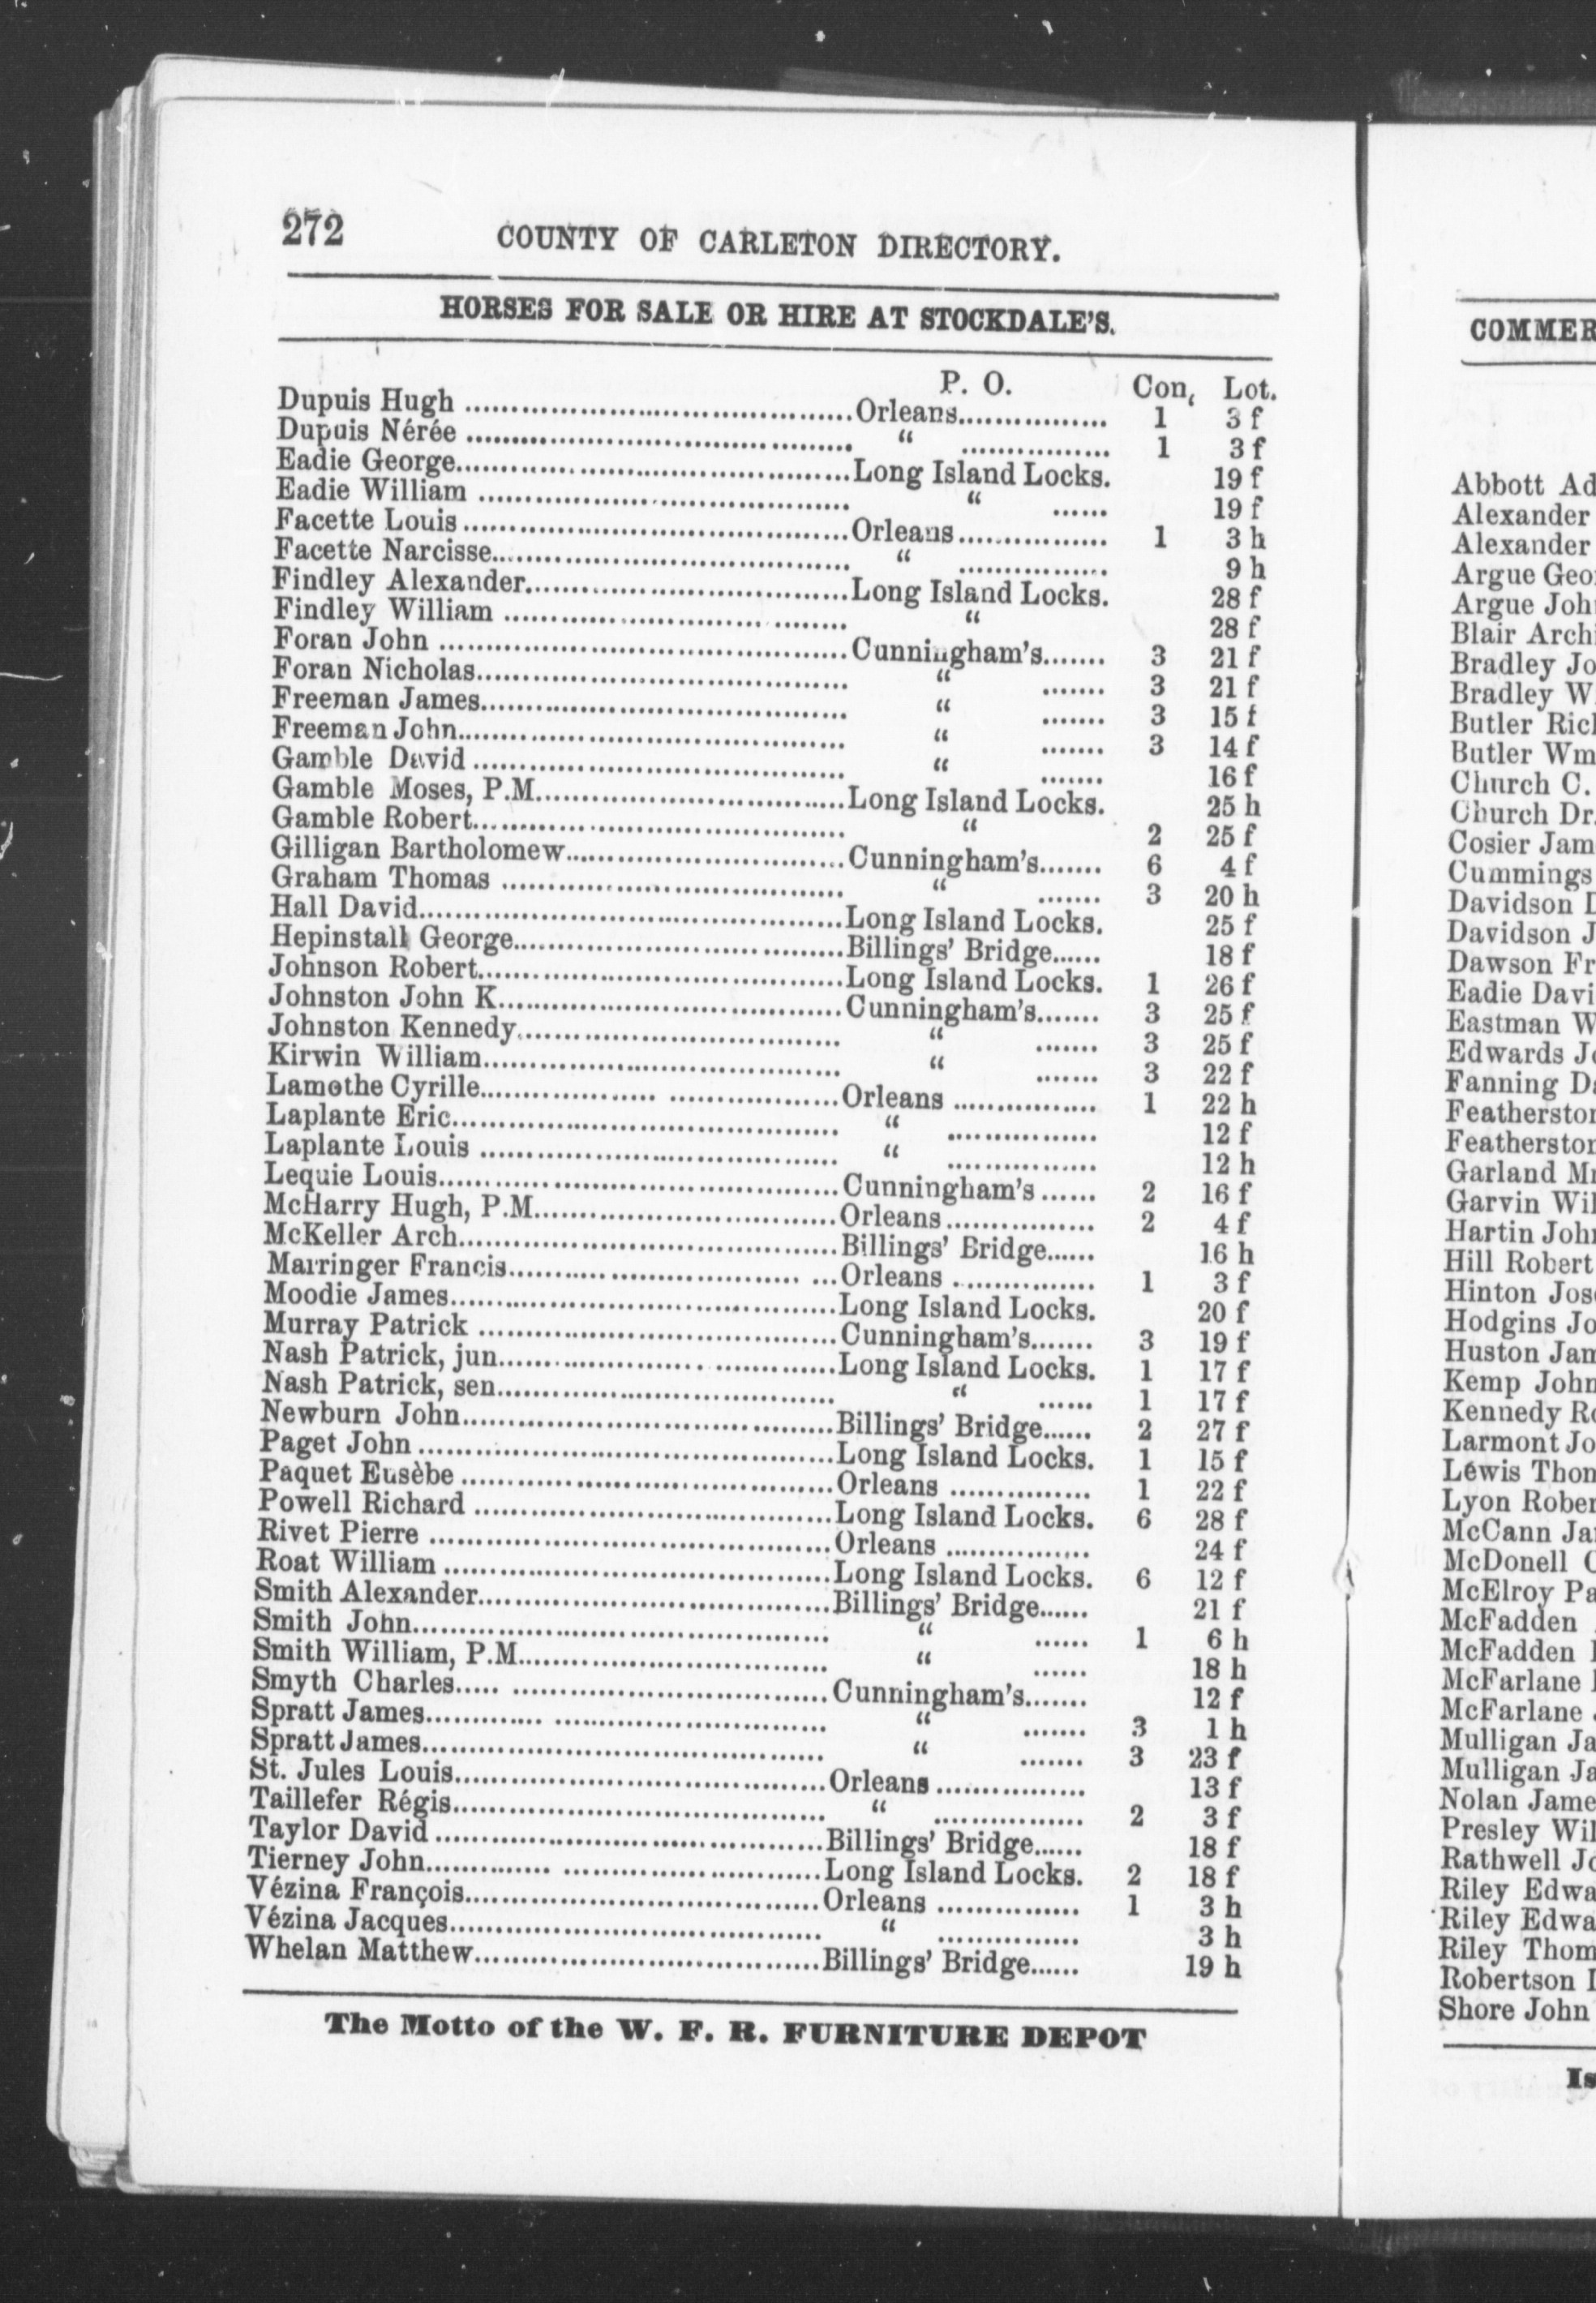 272 COUNTY OF CARLETON DIRECTORY.
HORSES FOR SALE OR HIRE AT STOCKDALE'S.
P. O. Con. Lot.
Dupuis Hugh ........ Orleans ........ 1 3 f
Dupuis Nérée ........ “ ........ 1 3 f
Eadie George ........ Long Island Locks. 19 f
Eadie William ........ “ ...... 19 f
Facette Louis ........ Orleans ........ 1 3 h
Facette Narcisse ........ “ ........ 9 h
Findley Alexander ........ Long Island Locks. 28 f
Findley William ........ “ 28 f
Foran John ........ Cunningham's ....... 3 21 f
Foran Nicholas ........ “ ....... 3 21 f
Freeman James ........ “ ....... 3 15 f
Freeman John ........ “ ....... 3 14 f
Gamble David ........ “ ....... 16 f
Gamble Moses, P.M. ........ Long Island Locks. 25 h
Gamble Robert ........ “ 2 25 f
Gilligan Bartholomew ........ Cunningham's ....... 6 4 f
Graham Thomas ........ “ ....... 3 20 h
Hall David ........ Long Island Locks. 25 f
Hepinstall George ........ Billings' Bridge ...... 18 f
Johnson Robert ........ Long Island Locks. 1 26 f
Johnston John K. ........ Cunningham's ....... 3 25 f
Johnston Kennedy ........ “ ....... 3 25 f
Kirwin William ........ “ ....... 3 22 f
Lamothe Cyrille ........ Orleans ........ 1 22 h
Laplante Eric ........ “ ........ 12 f
Laplante Louis ........ “ ........ 12 h
Lequie Louis ........ Cunningham's ...... 2 16 f
McHarry Hugh, P.M. ........ Orleans ........ 2 4 f
McKeller Arch. ........ Billings' Bridge ...... 16 h
Marringer Francis ........ Orleans ........ 1 3 f
Moodie James ........ Long Island Locks. 20 f
Murray Patrick ........ Cunningham's ....... 3 19 f
Nash Patrick, jun. ........ Long Island Locks. 1 17 f
Nash Patrick, sen. ........ “ ...... 1 17 f
Newburn John ........ Billings' Bridge ...... 2 27 f
Paget John ........ Long Island Locks. 1 15 f
Paquet Eusèbe ........ Orleans ........ 1 22 f
Powell Richard ........ Long Island Locks. 6 28 f
Rivet Pierre ........ Orleans ........ 24 f
Roat William ........ Long Island Locks. 6 12 f
Smith Alexander ........ Billings' Bridge ...... 21 f
Smith John ........ “ ...... 1 6 h
Smith William, P.M. ........ “ ...... 18 h
Smyth Charles ........ Cunningham's ....... 12 f
Spratt James ........ “ ....... 3 1 h
Spratt James ........ “ ....... 3 23 f
St. Jules Louis ........ Orleans ........ 13 f
Taillefer Régis ........ “ ........ 2 3 f
Taylor David ........ Billings' Bridge ...... 18 f
Tierney John ........ Long Island Locks. 2 18 f
Vézina François ........ Orleans ........ 1 3 h
Vézina Jacques ........ “ ........ 3 h
Whelan Matthew ........ Billings' Bridge ...... 19 h
The Motto of the W. F. R. FURNITURE DEPOT
Abbott
Alexander
Alexander
Argue
Argue
Blair
Bradley
Bradley
Butler
Butler Wm
Church C.
Church Dr.
Cosier
Cummings
Davidson
Davidson
Dawson
Eadie
Eastman
Edwards
Fanning
Garland
Garvin
Hartin
Hill Robert
Hinton
Hodgins
Huston
Kemp John
Kennedy
Larmont
Lewis
Lyon
McCann
McDonell
McElroy
McFadden
McFadden
McFarlane
McFarlane
Mulligan
Mulligan
Nolan
Presley
Rathwell
Riley
Riley
Riley
Robertson
Shore John